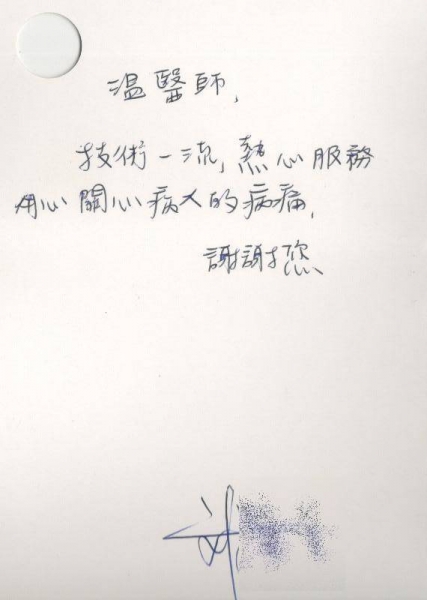 溫醫師,
技術一流,熱心服務
用心關心病人的病痛,
謝謝您